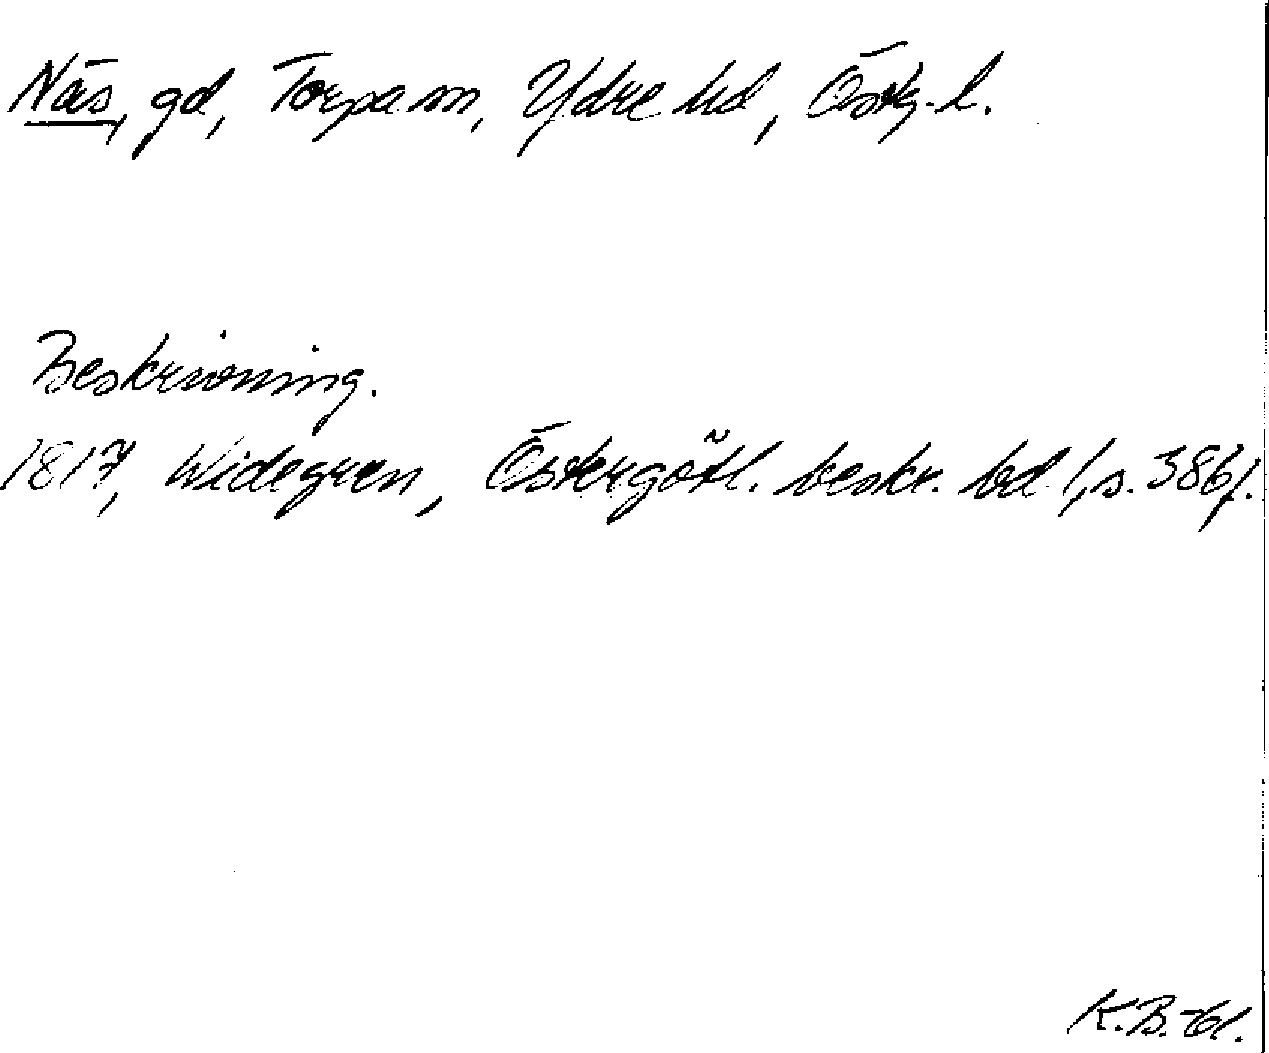 Näs, gd, Torpa sn, Ydre hd, Östg. l.
Beskrivning.
1817, Widegren, Östergötl. beskr. bd 1, s. 386f.
K.B.-61.